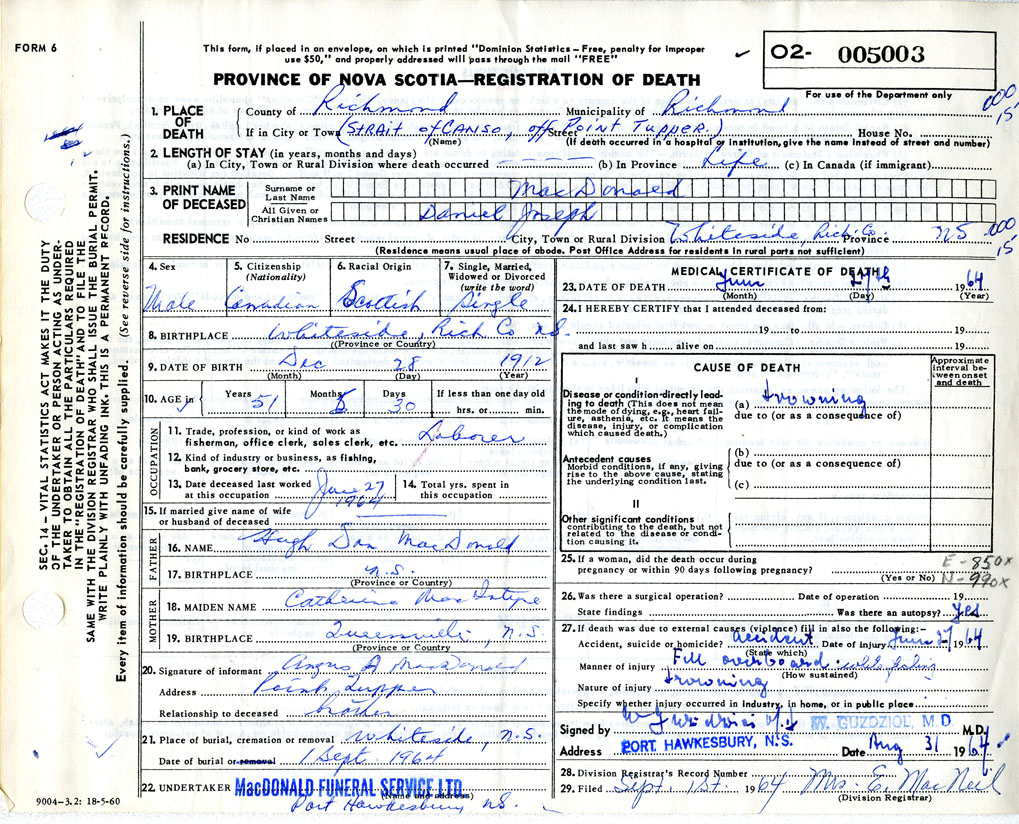 FORM 6
This form, if placed in an envelope, on which is printed "Dominion Statistics – Free, penalty for improper
use $50," and properly addressed will pass through the mail "FREE"
PROVINCE OF NOVA SCOTIA—REGISTRATION OF DEATH
O2- 005003
For use of the Department only
000
15
1. PLACE OF DEATH County of Richmond Municipality of Richmond
If in City or Town (STRAIT of CANSO, off Street POINT TUPPER.) House No.
(Name) (If death occurred in a hospital or institution, give the name instead of street and number)
2. LENGTH OF STAY (in years, months and days)
(a) In City, Town or Rural Division where death occurred – – – – (b) In Province Life (c) In Canada (if immigrant)
3. PRINT NAME OF DECEASED Surname or Last Name MacDonald
All Given or Christian Names Daniel Joseph
RESIDENCE No Street City, Town or Rural Division Whiteside, Rich Co. Province NS
000
15
(Residence means usual place of abode. Post Office Address for residents in rural parts not sufficient)
4. Sex Male
5. Citizenship (Nationality) Canadian
6. Racial Origin Scottish
7. Single, Married, Widowed or Divorced (write the word) Single
8. BIRTHPLACE Whiteside, Rich Co NS.
(Province or Country)
9. DATE OF BIRTH Dec 28 1912
(Month) (Day) (Year)
10. AGE in Years 51 Months Days 30 If less than one day old hrs. or min.
OCCUPATION
11. Trade, profession, or kind of work as fisherman, office clerk, sales clerk, etc. Laborer
12. Kind of industry or business, as fishing, bank, grocery store, etc.
13. Date deceased last worked at this occupation June 27 1964
14. Total yrs. spent in this occupation
15. If married give name of wife or husband of deceased
FATHER
16. NAME Hugh Dan MacDonald
17. BIRTHPLACE N.S.
(Province or Country)
MOTHER
18. MAIDEN NAME Catherine MacIntyre
19. BIRTHPLACE Queensville, N.S.
(Province or Country
20. Signature of informant Angus A MacDonald
Address Point Tupper
Relationship to deceased brother
21. Place of burial, cremation or removal Whiteside, N.S.
Date of burial or removal 1 Sept. 1964
22. UNDERTAKER MacDONALD FUNERAL SERVICE LTD.
(Name and address)
Port Hawkesbury NS.
MEDICAL CERTIFICATE OF DEATH
23. DATE OF DEATH June 27th 1964
(Month) (Day) (Year)
24. I HEREBY CERTIFY that I attended deceased from:
19 to 19
and last saw h alive on 19
CAUSE OF DEATH
Approximate interval between onset and death
I
Disease or condition directly leading to death (This does not mean the mode of dying, e.g., heart failure, asthenia, etc. It means the disease, injury, or complication which caused death.)
(a) Drowning
due to (or as a consequence of)
Antecedent causes
Morbid conditions, if any, giving rise to the above cause, stating the underlying condition last.
(b)
due to (or as a consequence of)
(c)
II
Other significant conditions contributing to the death, but not related to the disease or condition causing it.
25. If a woman, did the death occur during
pregnancy or within 90 days following pregnancy?
(Yes or No)
E-850x
N-990x
26. Was there a surgical operation? Date of operation 19
State findings Was there an autopsy? Yes
27. If death was due to external causes (violence) fill in also the following:–
Accident, suicide or homicide? Accident Date of injury June 27 1964
(State which)
Manner of injury Fell overboard while fishing
(How sustained)
Nature of injury Drowning
Specify whether injury occurred in industry, in home, or in public place
Signed by W. GUZDZIOL, M.D. M.D.
Address PORT HAWKESBURY, N.S. Date Aug 31 1964
28. Division Registrar's Record Number
29. Filed Sept. 1st. 1964 Mrs. E. MacNeil
(Division Registrar)
SEC. 14 – VITAL STATISTICS ACT MAKES IT THE DUTY
OF THE UNDERTAKER OR PERSON ACTING AS UNDERTAKER
TO OBTAIN ALL THE PARTICULARS REQUIRED
IN THE "REGISTRATION OF DEATH" AND TO FILE THE
SAME WITH THE DIVISION REGISTRAR WHO SHALL ISSUE THE BURIAL PERMIT.
WRITE PLAINLY WITH UNFADING INK. THIS IS A PERMANENT RECORD.
Every item of information should be carefully supplied. (See reverse side for instructions.)
9004-3.2: 18-5-60